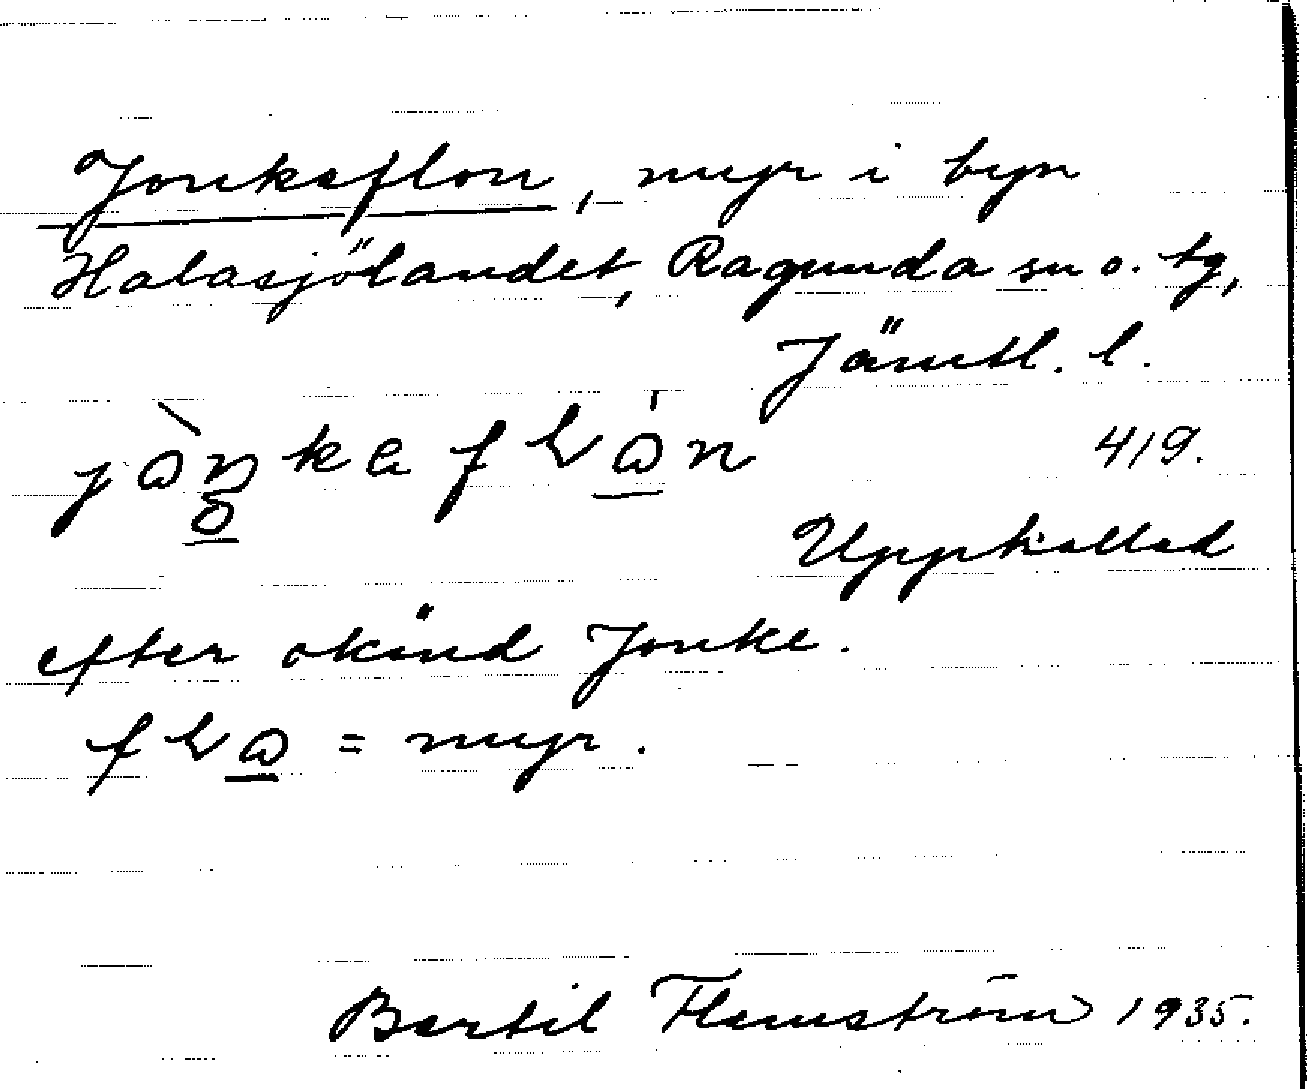 Jonkaflon, myr i byn
Halasjölandet, Ragunda sn o. tg,
Jämtl. l.
419.
Uppkallad
efter okänd Jonke.
= myr.
Bertil Flemström 1935.